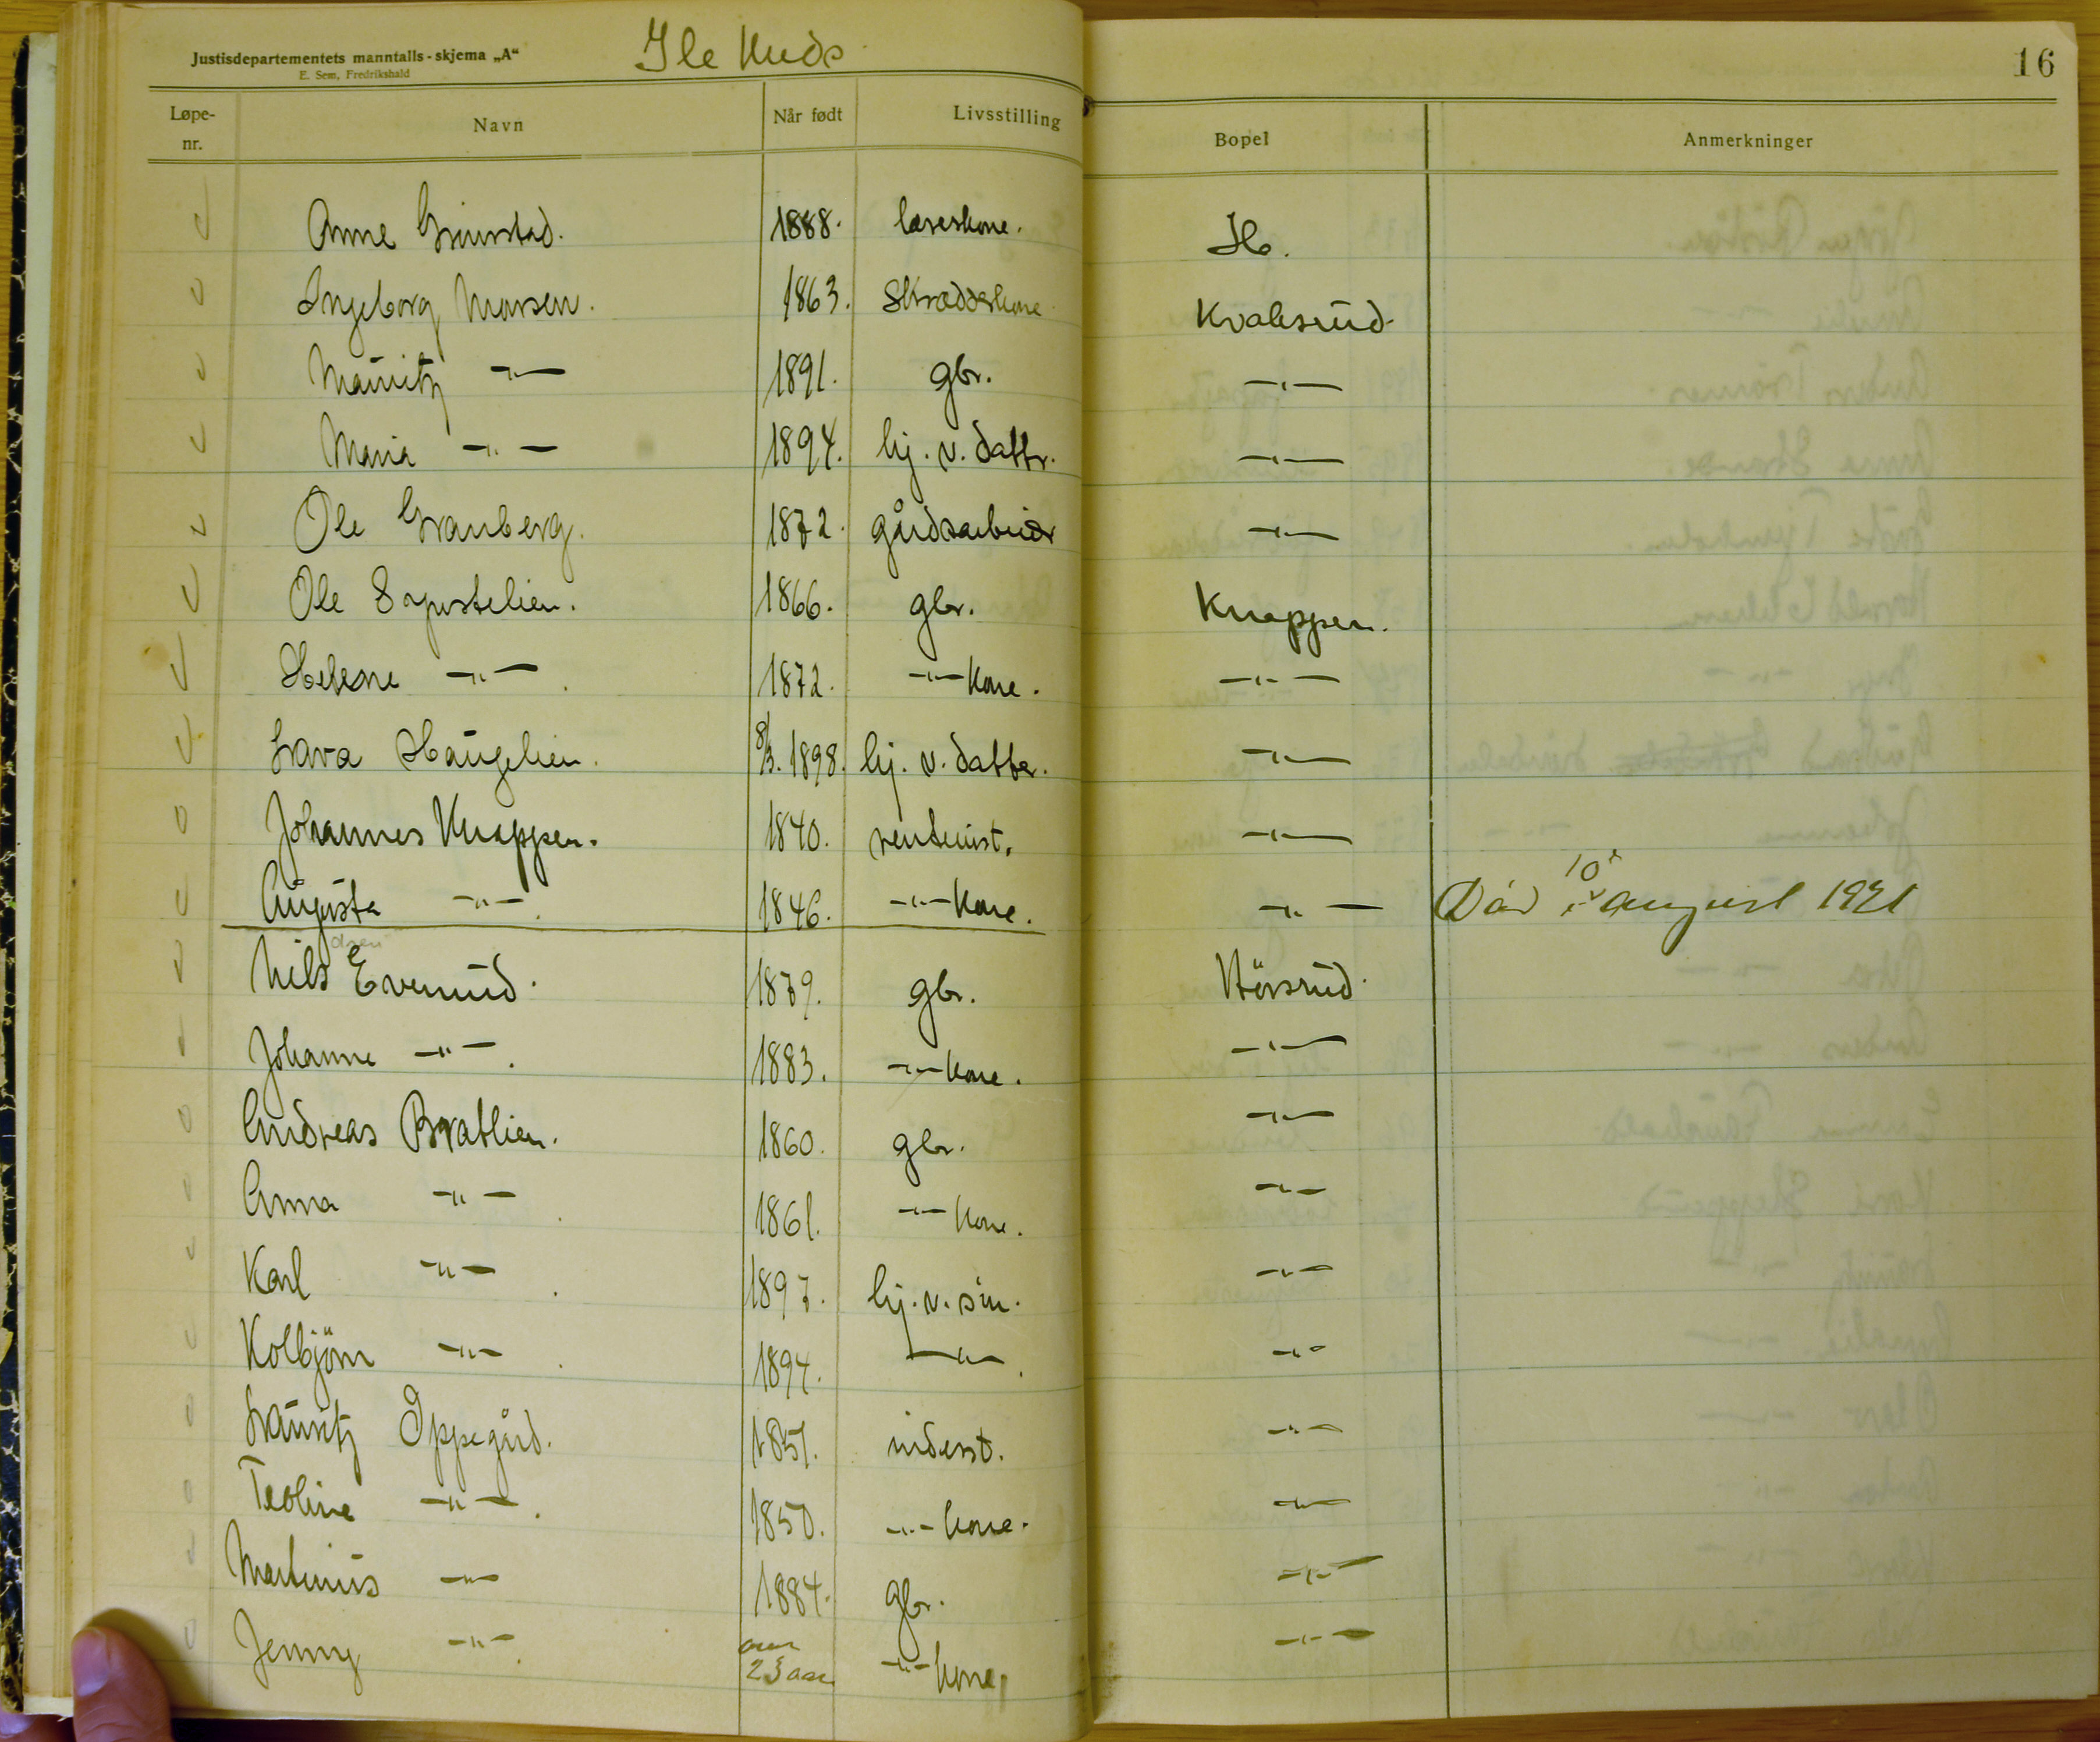 Justisdepartementets manntalls-skjema „A“
E. Sem, Fredrikshald
Ile Kreds
16
Løpe-nr. Navn Når født Livsstilling Bopel Anmerkninger
Anne Grimstad. 1888. lærerkone. Ile.
Ingeborg Morsen. 1863. Skrædderkone Kvalsrud.
Mauritz —"— 1891. gbr. —"—
Maria —"— 1894. hj. v. dattr. —"—
Ole Granberg. 1872. gårdsarbeider —"—
Ole 1866. gbr. Knappen.
Helene —"—. 1872. —"— kone. —"—
Lava Haugelien. 8/3. 1898. hj. v. datter. —"—
Johannes Knappen. 1840. rentenist. —"—
Augusta —"—. 1846. —"— kone. —"— Död 10 august 1921
Nils Evenrud. 1879. gbr. Hörsrud.
Johanne —"—. 1883. —"— kone. —"—
Andreas Bratlien. 1860. gbr. —"—
Anna —"—. 1861. —"— kone. —"—
Karl —"—. 1897. hj. v. sön. —"—
Kolbjörn —"—. 1894. —"—. —"—
Lauritz Oppegård. 1851. inderst. —"—
Teoline —"—. 1850. —"— kone. —"—
Martinius —"— 1884. gbr. —"—
Jenny —"—. over 23 aar —"— kone, —"—